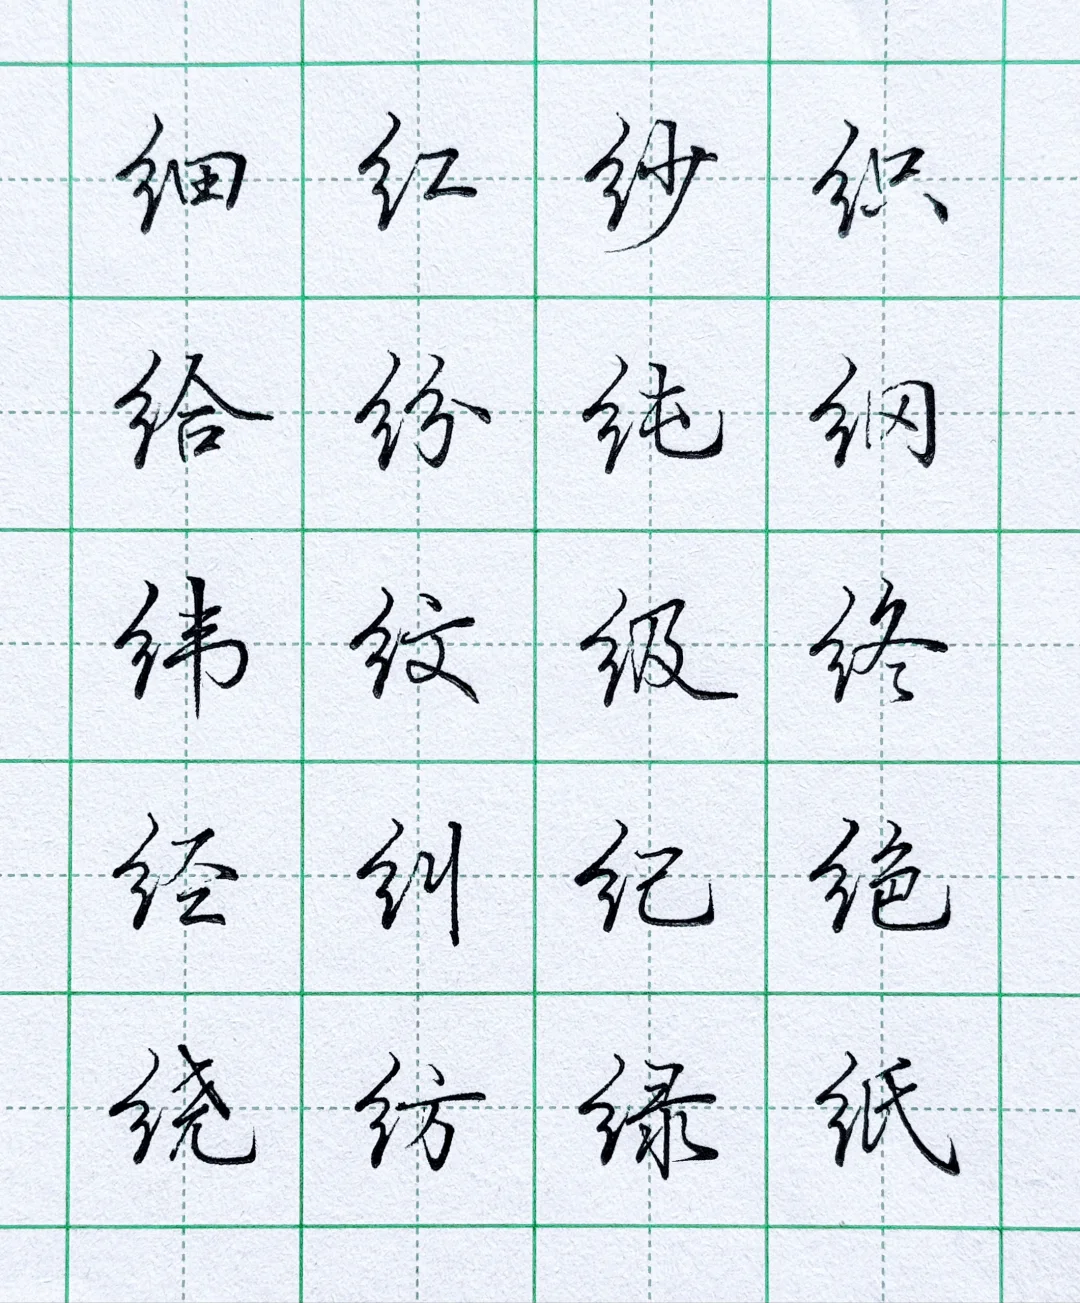 细红纱织
给纷纯纲
纬纹级终
经纠纪绝
绕纺绿纸